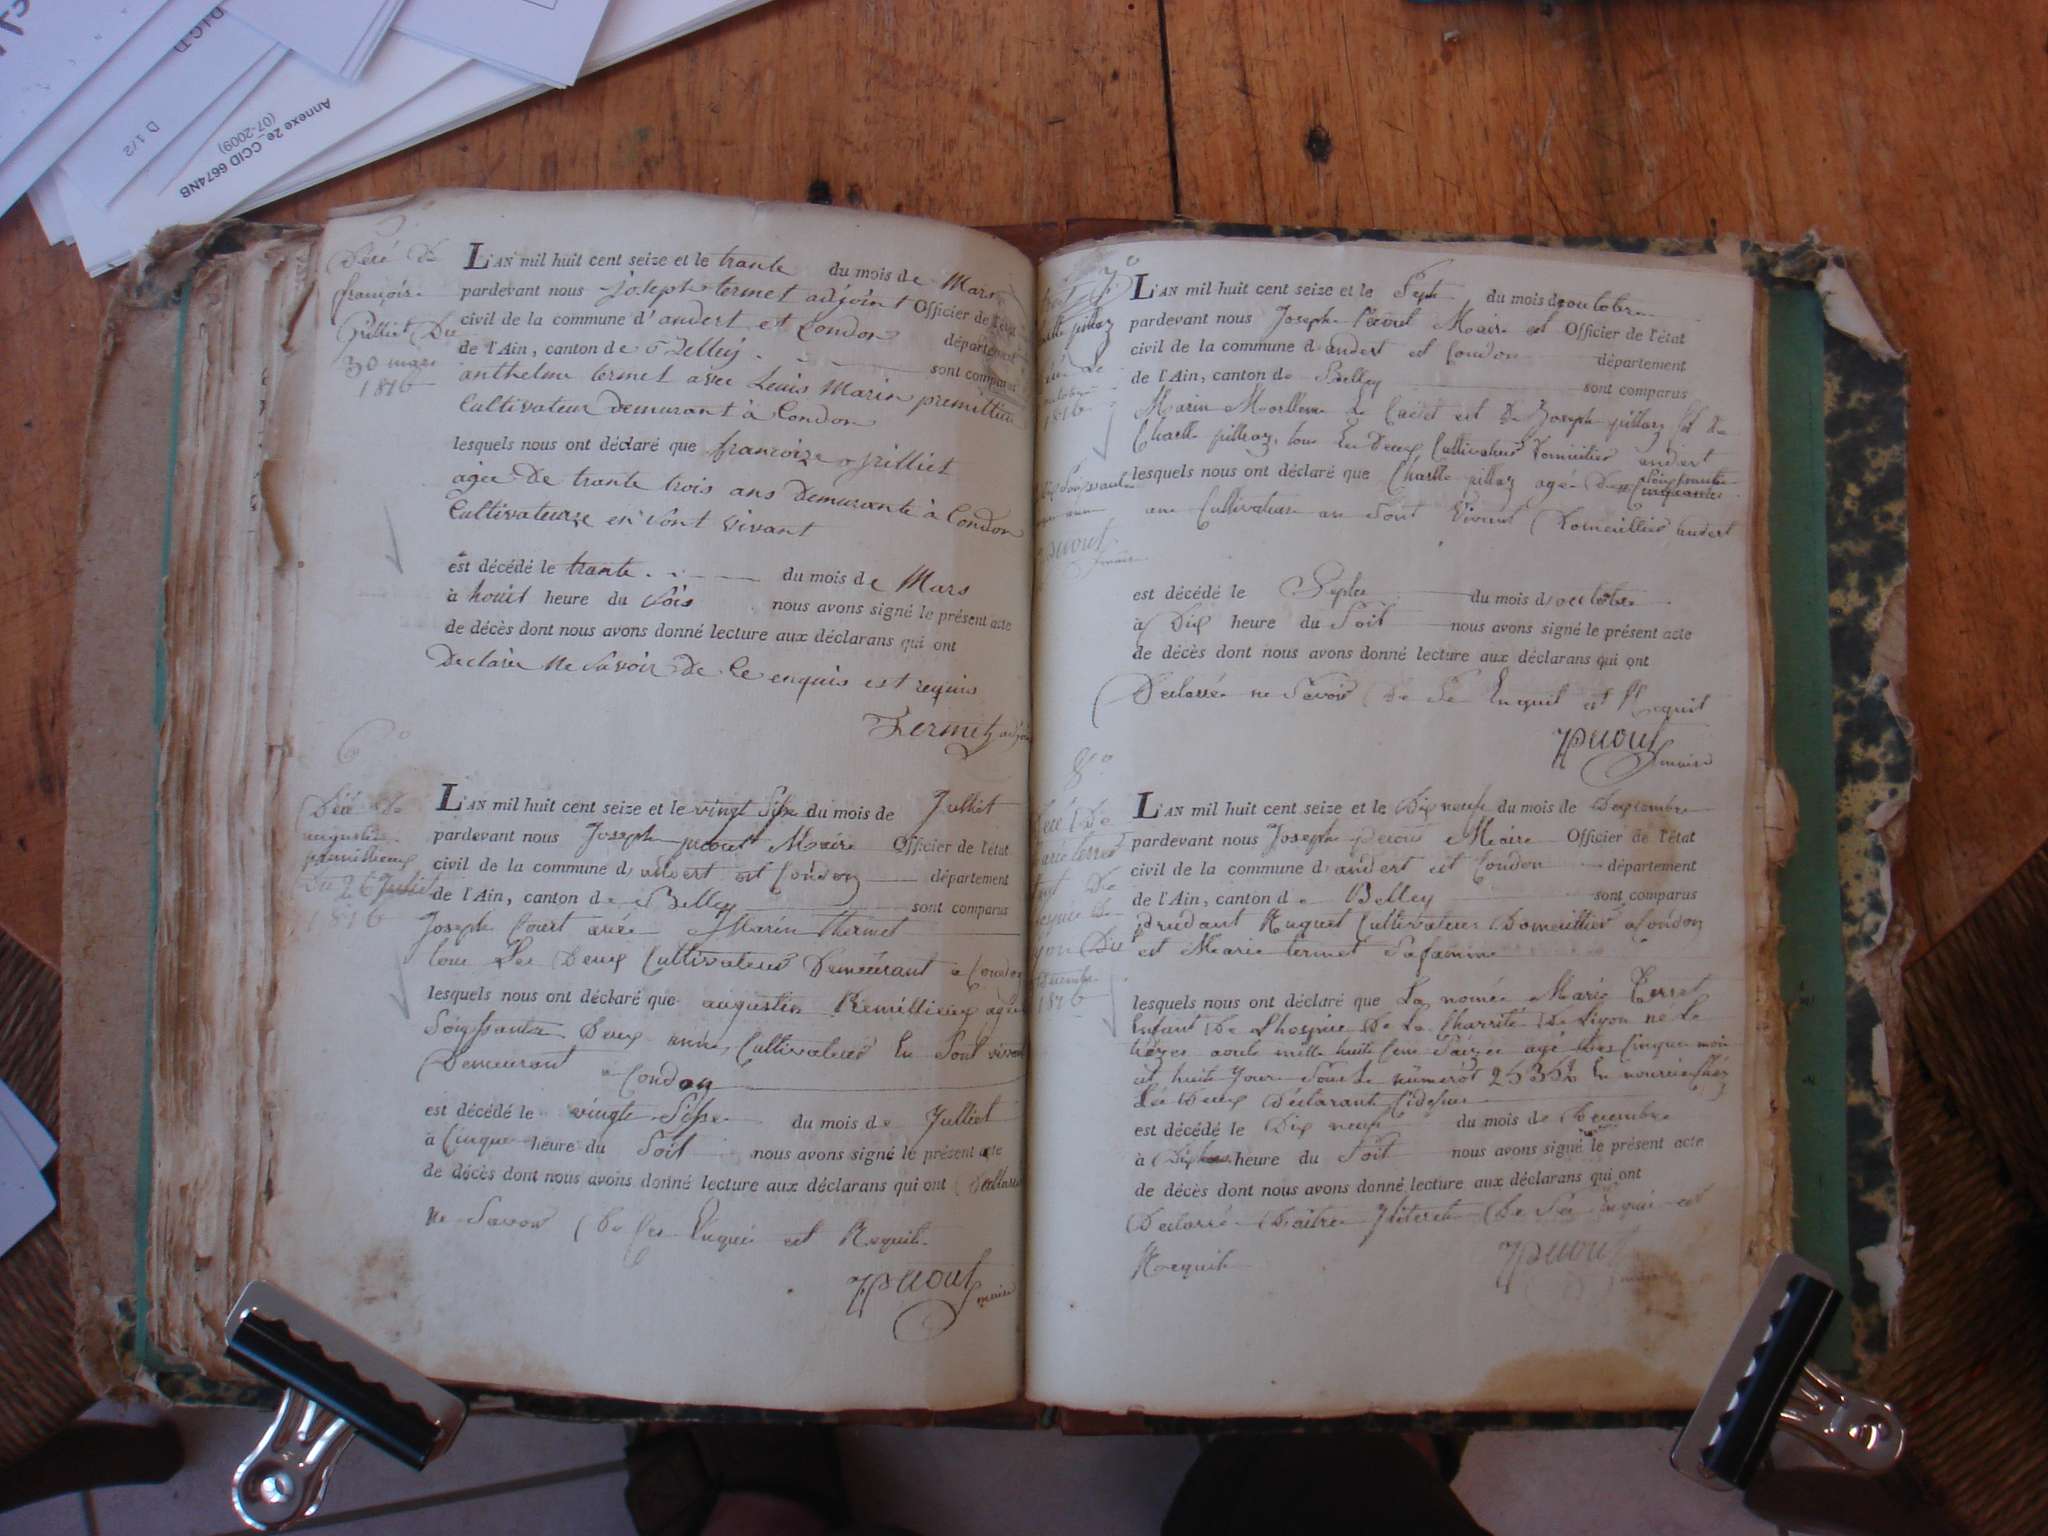 Annexe 2e CCID 6674NB
(07-2009)
D 1/2
D.I.C.D
françoise
Grilliet Du
30 mars
1816
L'AN mil huit cent seize et le trante du mois de Mars
pardevant nous joseph termet adjoint Officier de l'état
civil de la commune d'andert et Condon département
de l'Ain, canton de Belley sont comparus
anthelme termet avec Louis Marin premillieu
Cultivateur demurant à Condon
lesquels nous ont déclaré que françoize grilliet
agée De trante trois ans Demurante à Condon
Cultivateurse en sont vivant
est décédé le trante du mois de Mars
à houit heure du soir nous avons signé le présent acte
de décès dont nous avons donné lecture aux déclarans qui ont
Declarée ne savoir De Ce enquis est requis
Termet adjoint
6°
augustin
Du 26 Juliet
1816
L'AN mil huit cent seize et le vingt Sixe du mois de Julliet
pardevant nous Joseph Maire Officier de l'état
civil de la commune d'andert est Condon département
de l'Ain, canton de Belley sont comparus
Joseph Court avée Marin thermet
tous Les Deux Cultivateurs Demeurant a Condon
lesquels nous ont déclaré que augustin Remillieux agé
Soixsante Deux année Cultivateur En Sont vivant
Demeurant a Condon
est décédé le vingte Sixe du mois de Julliet
à Cinque heure du Soit nous avons signé le présent acte
de décès dont nous avons donné lecture aux déclarans qui ont Declarée
ne Savoir De Ces Enquis est Requit
maire
7°
pillaz
1816
L'AN mil huit cent seize et le Septe du mois d'outobre
pardevant nous Joseph Maire est Officier de l'état
civil de la commune d'andert est Condon département
de l'Ain, canton de Belley sont comparus
Marin Le Cadet est De Joseph pillaz fil De
Charlle pillaz, tous Les Deux Cultivateurs Domicilier andert
lesquels nous ont déclaré que Charlle pillaz agée De Soixsante Cinquante
ans Cultivateur an Sont Vivant Domeicillier andert
maire
est décédé le Septe du mois d'outobre
à Dix heure du Soit nous avons signé le présent acte
de décès dont nous avons donné lecture aux déclarans qui ont
Declarée ne Savoir De Se Enquit est Requit
maire
8°
Décembre
1816
L'AN mil huit cent seize et le Dix neufe du mois de Deysembre
pardevant nous Joseph Maire Officier de l'état
civil de la commune d'andert est Condon département
de l'Ain, canton de Belley sont comparus
prudant Huguet Cultivateur Domeicillier a Condon
est Marie termet Safamme
lesquels nous ont déclaré que La nomée Marie Terret
Enfant De L'hospice De La Charrité De Liyon né Le
trezes aoute mille huite Cent Saizes agé Des Cinque moi
est huite Jour Sous Le numérot 25352 En nourrice Chez
Les Deux Déclarant Cidesus
est décédé le Dix neufe du mois de Decembre
à Dix heure du Soit nous avons signé le présent acte
de décès dont nous avons donné lecture aux déclarans qui ont
Declarré Daitre De Se Enqui est
Recquit
maire